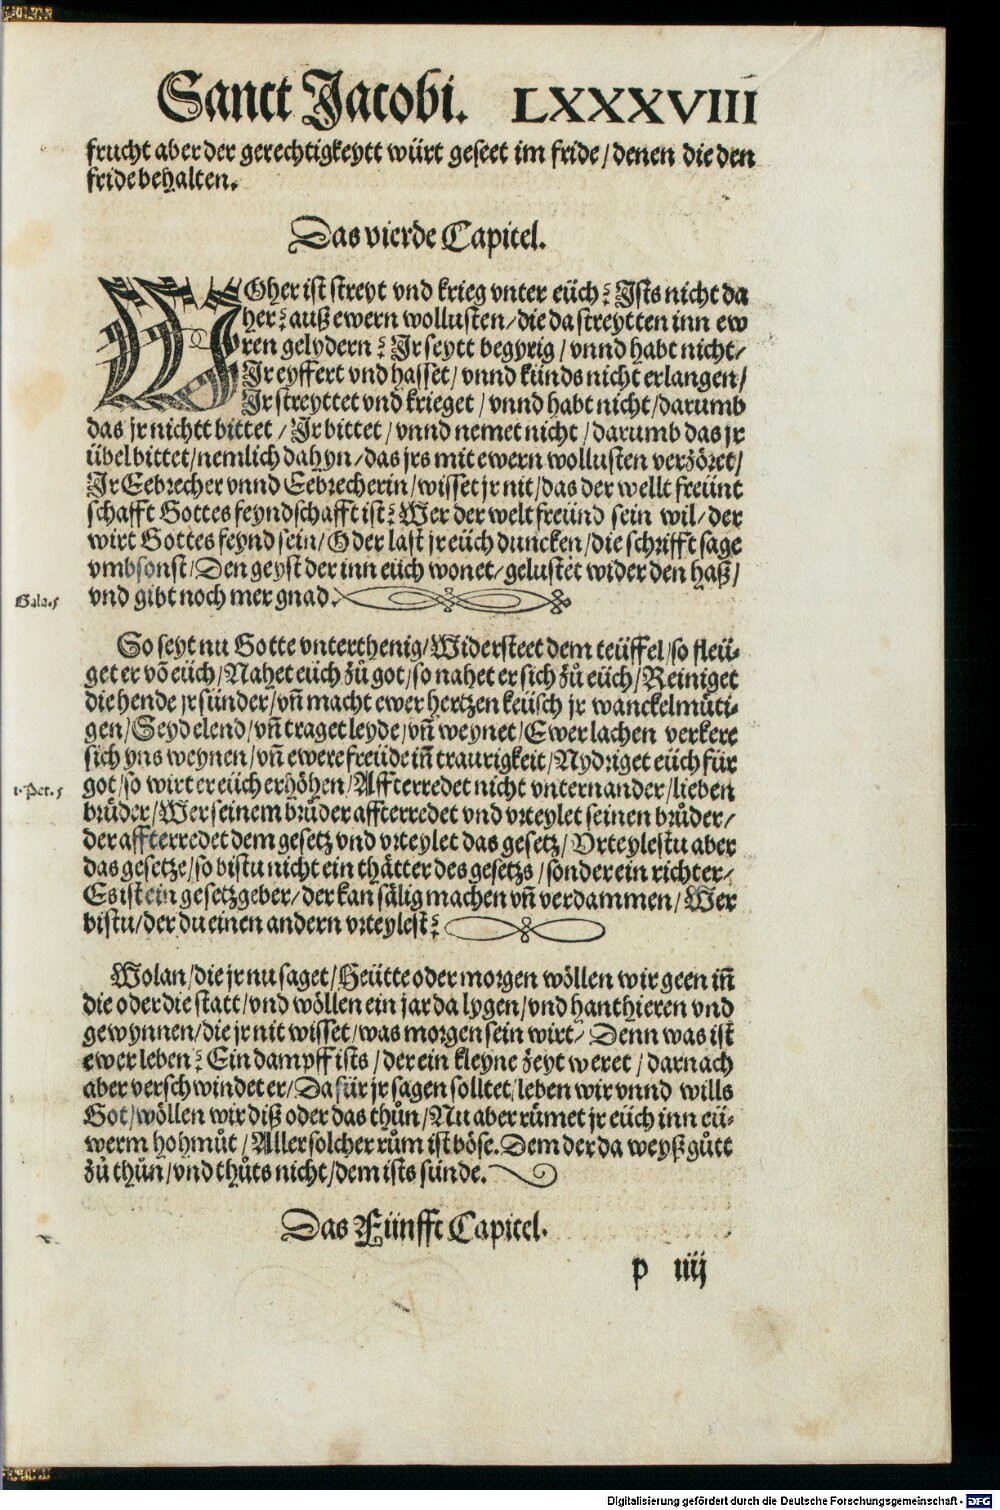 Sanct Jacobi. LXXXVIII
frucht aber der gerechtigkeytt würt geseet im fride / denen die den
fride behalten.
Das vierde Capitel.
WOher ist streyt vnd krieg vnter eüch? Ists nicht da
her? auß ewern wollusten / die da streytten inn ew
ren gelydern? Jr seytt begyrig / vnnd habt nicht /
Jr eyffert vnd hasset / vnnd künds nicht erlangen /
Jr streyttet vnd krieget / vnnd habt nicht / darumb
das jr nichtt bittet / Jr bittet / vnnd nemet nicht / darumb das jr
übel bittet / nemlich dahyn / das jrs mit ewern wollusten verzöret /
Jr Eebrecher vnnd Eebrecherin / wisset jr nit / das der wellt freünt
schafft Gottes feyndschafft ist? Wer der welt freünd sein wil / der
wirt Gottes feynd sein / Oder last jr eüch duncken / die schrifft sage
vmbsonst / Den geyst der inn eüch wonet / gelustet wider den haß /
Gala. 5
vnd gibt noch mer gnad.
So seyt nu Gotte vnterthenig / Widersteet dem teüffel / so fleü-
get er võ eüch / Nahet eüch zů got / so nahet er sich zů eüch / Reiniget
die hende jr sünder / vñ macht ewer hertzen keüsch jr wanckelmüti-
gen / Seyd elend / vñ traget leyde / vñ weynet / Ewer lachen verkere
sich yns weynen / vñ ewere freüde iñ traurigkeit / Nydriget eüch für
1. Pet. 5
got / so wirt er eüch erhöhen / Affterredet nicht vnternander / lieben
brüder / Wer seinem brůder affterredet vnd vrteylet seinen brůder /
der affterredet dem gesetz vnd vrteylet das gesetz / Vrteylestu aber
das gesetze / so bistu nicht ein thätter des gesetzs / sonder ein richter /
Es ist ein gesetzgeber / der kan sälig machen vñ verdammen / Wer
bistu / der du einen andern vrteylest?
Wolan / die jr nu saget / Heütte oder morgen wöllen wir geen iñ
die oder die statt / vnd wöllen ein jar da lygen / vnd hanthieren vnd
gewynnen / die jr nit wisset / was morgen sein wirt / Denn was ist
ewer leben? Ein dampff ists / der ein kleyne zeyt weret / darnach
aber verschwindet er / Da für jr sagen solltet / leben wir vnnd wills
Got / wöllen wir diß oder das thůn / Nu aber rümet jr eüch inn eü-
werm hohmůt / Aller solcher rům ist böse. Dem der da weyß gůtt
zů thůn / vnd thůts nicht / dem ists sünde.
Das Fünfft Capitel.
p iiij
Digitalisierung gefördert durch die Deutsche Forschungsgemeinschaft - DFG